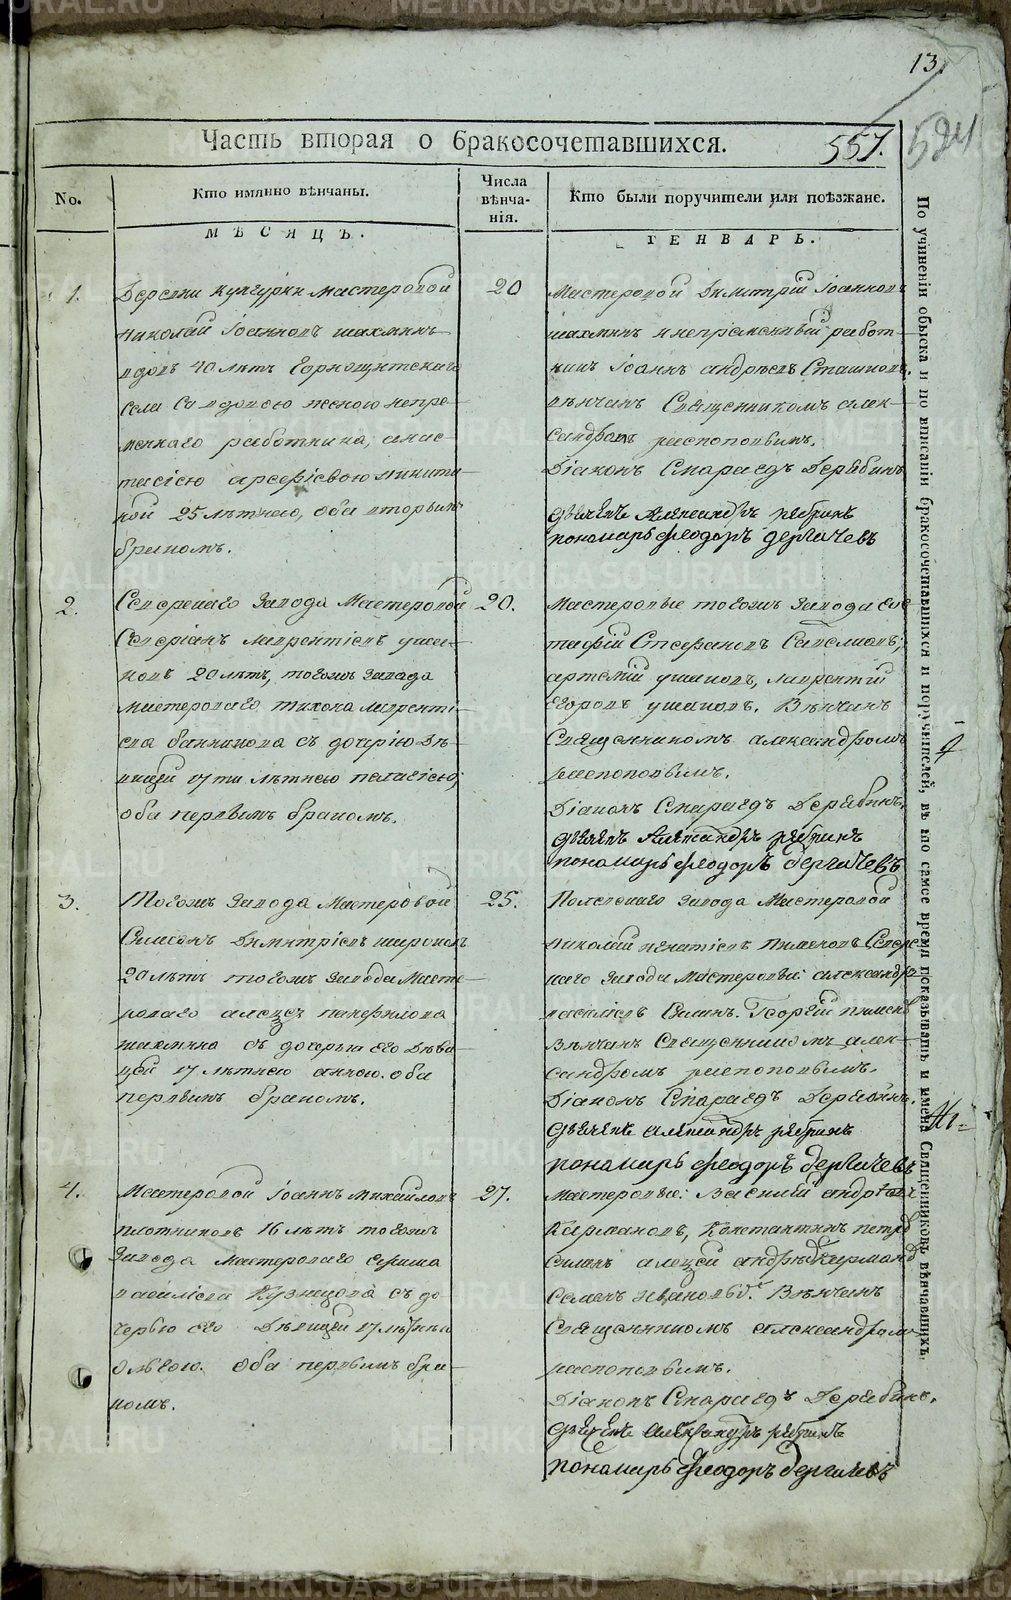 13
Часть вторая о бракосочетавшихся.
557.
524
No.
Кто имянно вѣнчаны.
Числа вѣнча-нія.
Кто были поручители или поѣзжане.
МѢСЯЦЪ.
ГЕНВАРЬ.
1.
Деревни Кунгурки мастеровой
Николай Іоанновъ Шахминъ
вдовъ 40 лѣтъ Горнощитскаго
села со вдовою женою непре-
меннаго работника, Анас-
тасіею Арсефіевою Никити-
ной 25 лѣтнею, оба вторымъ
бракомъ.
20
Мастеровой Димитрій Іоанновъ
Шахминъ и непременный работ-
никъ Іоаннъ Андрѣевъ Сташковъ.
вѣнчанъ Священникомъ Алек-
сандромъ Распоповымъ.
Діаконъ Смарагдъ Дерябинъ
дьячекъ Александръ
пономарь Феодоръ Дергачевъ
2.
Северскаго завода Мастеровой
Северіанъ Лаврентіевъ Уша-
ковъ 20 лѣтъ, тогожъ завода
мастероваго Тихона Лавренті-
ева Банникова съ дочерію дѣ-
вицей 17ти лѣтнею Пелагіею;
оба первымъ бракомъ.
20.
Мастеровые тогожъ завода Евс-
тафій Стефановъ Савелиевъ;
Артемій Ушаковъ, Лаврентій
Егоровъ Ушаковъ. Вѣнчанъ
Священникомъ Александромъ
Распоповымъ.
Діаконъ Смарагдъ Дерябинъ.
дьячекъ Александръ
пономарь Феодоръ Дергачевъ
3.
Тогожъ завода Мастеровой
Симеонъ Димитріевъ Широковъ
20 лѣтъ тогожъ завода Масте-
роваго Алексея Панфилова
Шахмина съ дочерью его дѣви-
цей 17 лѣтнею Анною. оба
первымъ бракомъ.
25.
Полевскаго завода Мастеровой
Николай Игнатіевъ Пименовъ Север-
скаго завода Мастеровые: Александръ
Василіевъ Силинъ. Георгій Пимен
Вѣнчанъ Священникомъ Алек-
сандромъ Распоповымъ.
Діаконъ Смарагдъ Дерябинъ.
дьячекъ Александръ
пономарь Феодоръ Дергачевъ
4.
Мастеровой Іоаннъ Михайловъ
Плотниковъ 16 лѣтъ тогожъ
завода мастероваго
Василіева Кузнецова съ до-
черью его Дѣвицей 17 лѣтнею
Ольгою. Оба первымъ бра-
комъ.
27.
Мастеровые: Василій Андрѣевъ
Карманова, Константинъ Петровъ
Силинъ Алексей Андрѣевъ Карманов
Семенъ Ивановъ. Вѣнчанъ
Священникомъ Александромъ
Распоповымъ.
Діаконъ Смарагдъ Дерябинъ.
дьячекъ Александръ
пономарь Феодоръ Дергачевъ
По учиненіи обыска и по вписаніи бракосочетавшихся и поручителей, въ то самое время показывать и имена Священниковъ вѣнчавшихъ.
METRIKI.GASO-URAL.RU